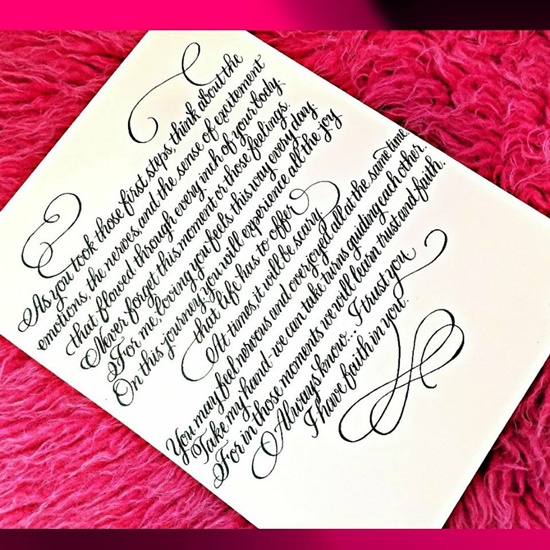 As you took those first steps, think about the
emotions, the nerves and the sense of excitement
that flowed through every inch of your body.
Never forget this moment or those feelings.
For me, loving you feels this way every day.
On this journey, you will experience all the joy
that life has to offer.
At times it will be scary.
You may feel nervous and overjoyed all at the same time.
Take my hand - we can take turns guiding each other.
For in those moments we will learn trust and faith.
Always know... I trust you
I have faith in you